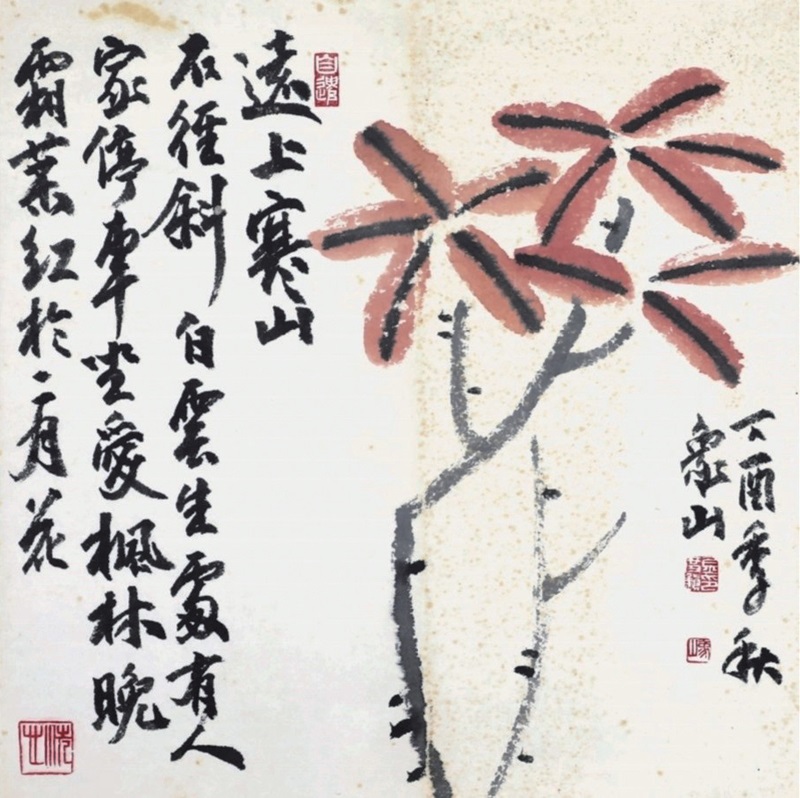 遠上寒山
石徑斜白雲生處有人
家停車坐愛楓林晚
霜葉紅於二月花
丁酉季秋
象山